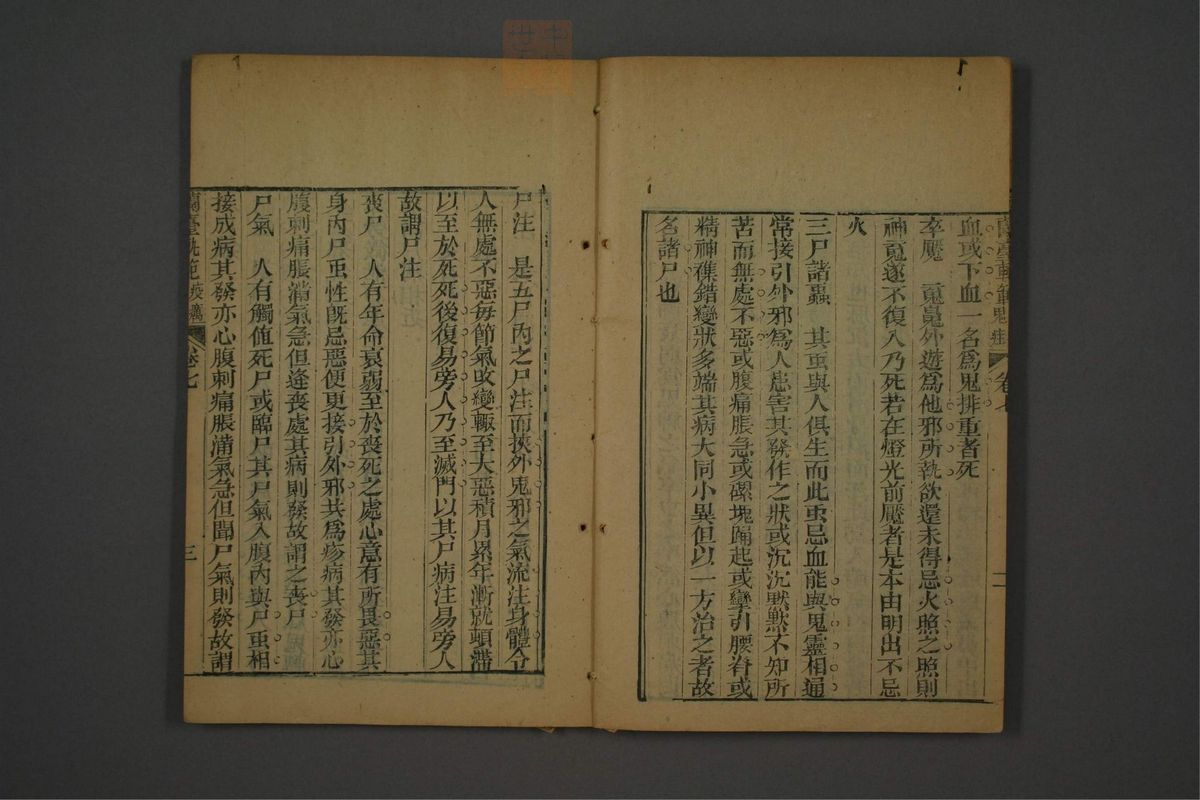 蘭臺軌範鬼疰　卷七　二
血或下血一名爲鬼排重者死
卒魘　䰟嵬外遊爲他邪所執欲還未得忌火照之照則
神䰟遂不復入乃死若在燈光前魘者是本由明出不忌
火
三尸諸蟲　其虫與人俱生而此虫忌血能與鬼靈相通
常接引外邪爲人患害其發作之狀或沉沉默默不知所
苦而無處不惡或腹痛脹急或磥塊踊起或攣引腰脊或
精神雜錯變狀多端其病大同小異但以一方治之者故
名諸尸也
尸注　是五尸內之尸注而挾外鬼邪之氣流注身體令
人無處不惡每節氣攺變輙至大惡積月累年漸就頓滯
以至於死死後復易旁人乃至滅門以其尸病注易旁人
故謂尸注
喪尸　人有年命衰弱至於喪死之處心意有所畏惡其
身內尸虫性旣忌惡便更接引外邪共爲疹病其發亦心
腹刺痛脹滿氣急但逢喪處其病則發故謂之喪尸
尸氣　人有觸值死尸或臨尸其尸氣入腹內與尸虫相
接成病其發亦心腹刺痛脹滿氣急但聞尸氣則發故謂
蘭臺軌范　卷七　三